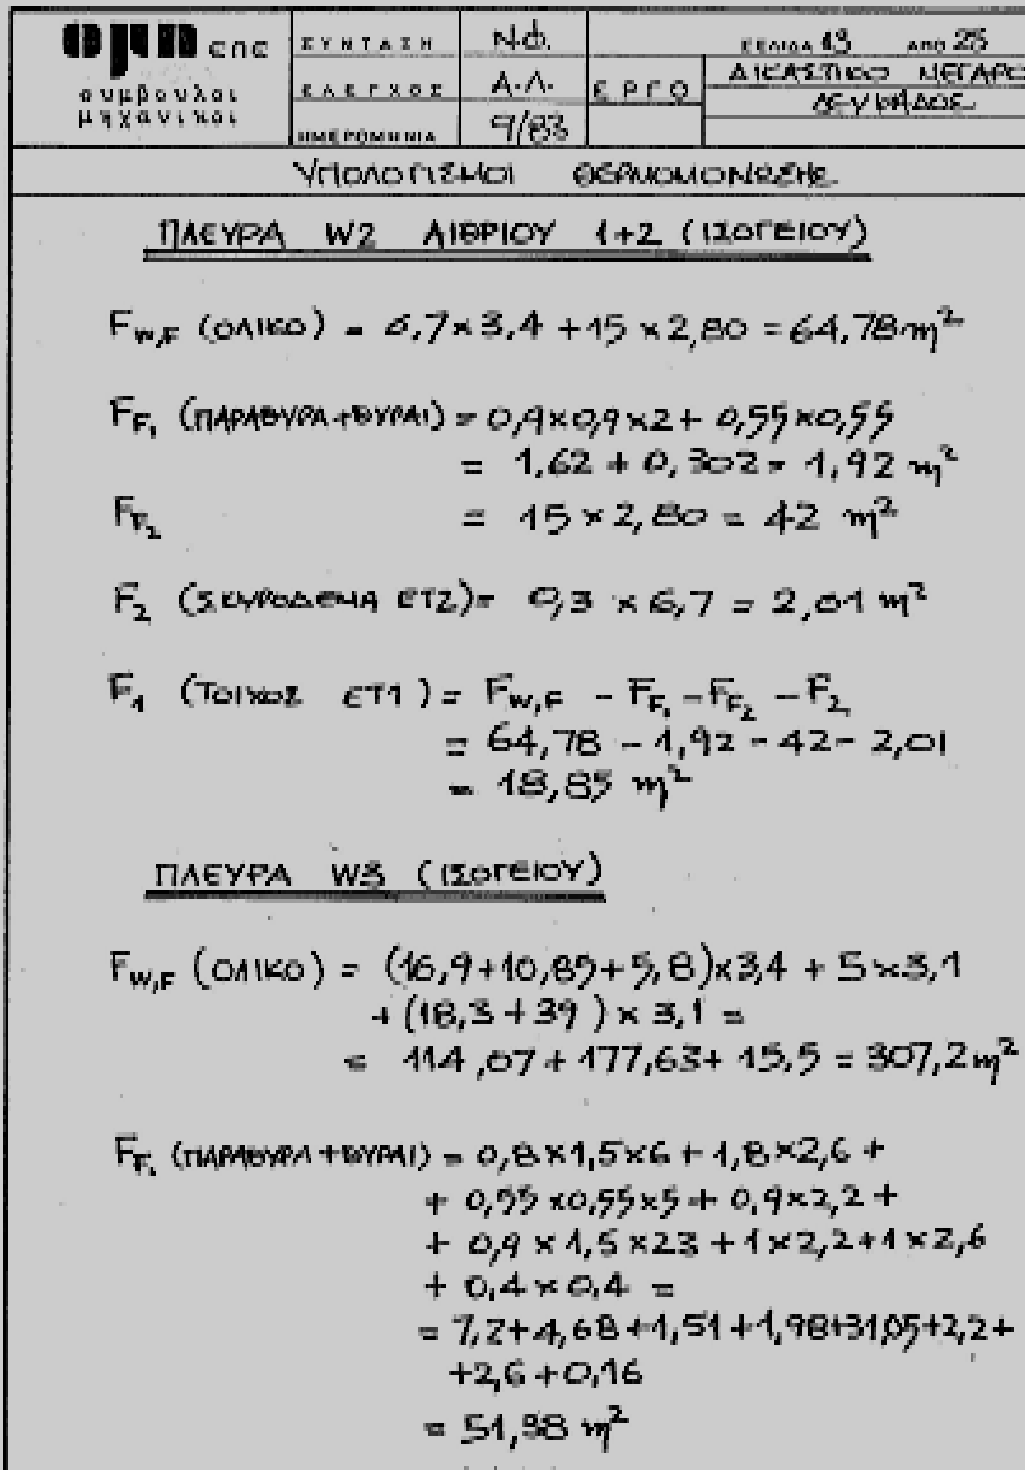 επε
σύμβουλοι
μηχανικοί
ΣΥΝΤΑΞΗ Ν.Φ.
ΕΛΕΓΧΟΣ Α.Λ.
ΗΜΕΡΟΜΗΝΙΑ 9/83
ΕΡΓΟ
ΣΕΛΙΔΑ 13 ΑΠΟ 25
ΔΙΚΑΣΤΙΚΟ ΜΕΓΑΡΟ
ΛΕΥΚΑΔΟΣ
ΥΠΟΛΟΓΙΣΜΟΙ ΘΕΡΜΟΜΟΝΩΣΗΣ
ΠΛΕΥΡΑ W2 ΑΙΘΡΙΟΥ 1+2 (ΙΣΟΓΕΙΟΥ)
F_W,F (ΟΛΙΚΟ) = 6,7×3,4 +15×2,80 = 64,78 m²
F_F₁ (ΠΑΡΑΘΥΡΑ+ΘΥΡΑΙ) = 0,9×0,9×2+ 0,55×0,55
= 1,62 + 0,302 = 1,92 m²
F_F₂ = 15×2,80 = 42 m²
F₂ (ΣΚΥΡΟΔΕΜΑ ΕΤ2) = 0,3 × 6,7 = 2,01 m²
F₁ (ΤΟΙΧΟΣ ΕΤ1) = F_W,F - F_F₁ - F_F₂ - F₂
= 64,78 - 1,92 - 42 - 2,01
= 18,85 m²
ΠΛΕΥΡΑ W3 (ΙΣΟΓΕΙΟΥ)
F_W,F (ΟΛΙΚΟ) = (16,9+10,85+5,8)×3,4 + 5×3,1
+ (18,3+39) × 3,1 =
= 114,07 + 177,63 + 15,5 = 307,2 m²
F_F₁ (ΠΑΡΑΘΥΡΑ+ΘΥΡΑΙ) = 0,8×1,5×6 + 1,8×2,6 +
+ 0,55×0,55×5 + 0,9×2,2 +
+ 0,9×1,5×23 + 1×2,2+1×2,6
+ 0,4×0,4 =
= 7,2+4,68+1,51+1,98+31,05+2,2+
+2,6+0,16
= 51,38 m²